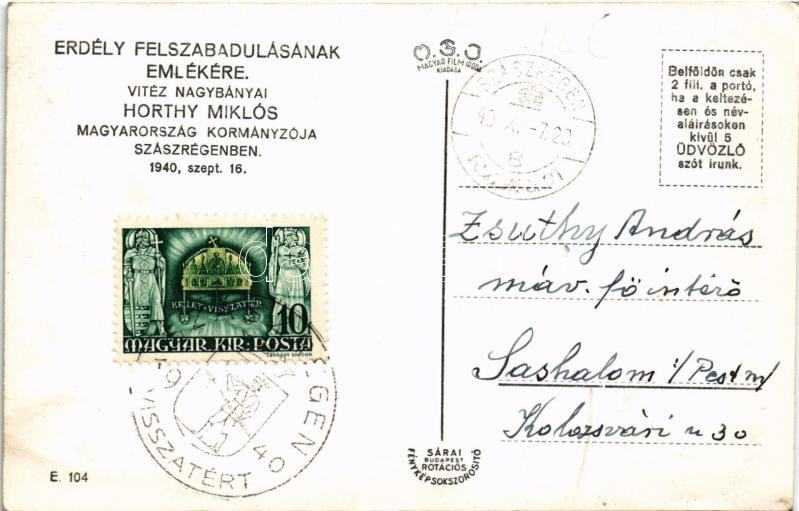 ERDÉLY FELSZABADULÁSÁNAK
EMLÉKÉRE.
VITÉZ NAGYBÁNYAI
HORTHY MIKLÓS
MAGYARORSZÁG KORMÁNYZÓJA
SZÁSZRÉGENBEN.
1940, szept. 16.
MAGYAR FILM IRODA
KIADÁSA
SZÁSZRÉGEN
40. X. -7. 20.
B
Belföldön csak
2 fill. a portó,
ha a keltezé-
sen és név-
aláirásokon
kivül 5
ÜDVÖZLŐ
szót irunk.
KELET·VISSZATÉR
10
MAGYAR. KIR: POSTA
VISSZATÉRT
Zsuthy András
máv. főintéző
Sashalom i/Pest m/
Kolozsvári u 30
SÁRAI
BUDAPEST
ROTÁCIÓS
FÉNYKÉPSOKSZOROSITÓ
E. 104